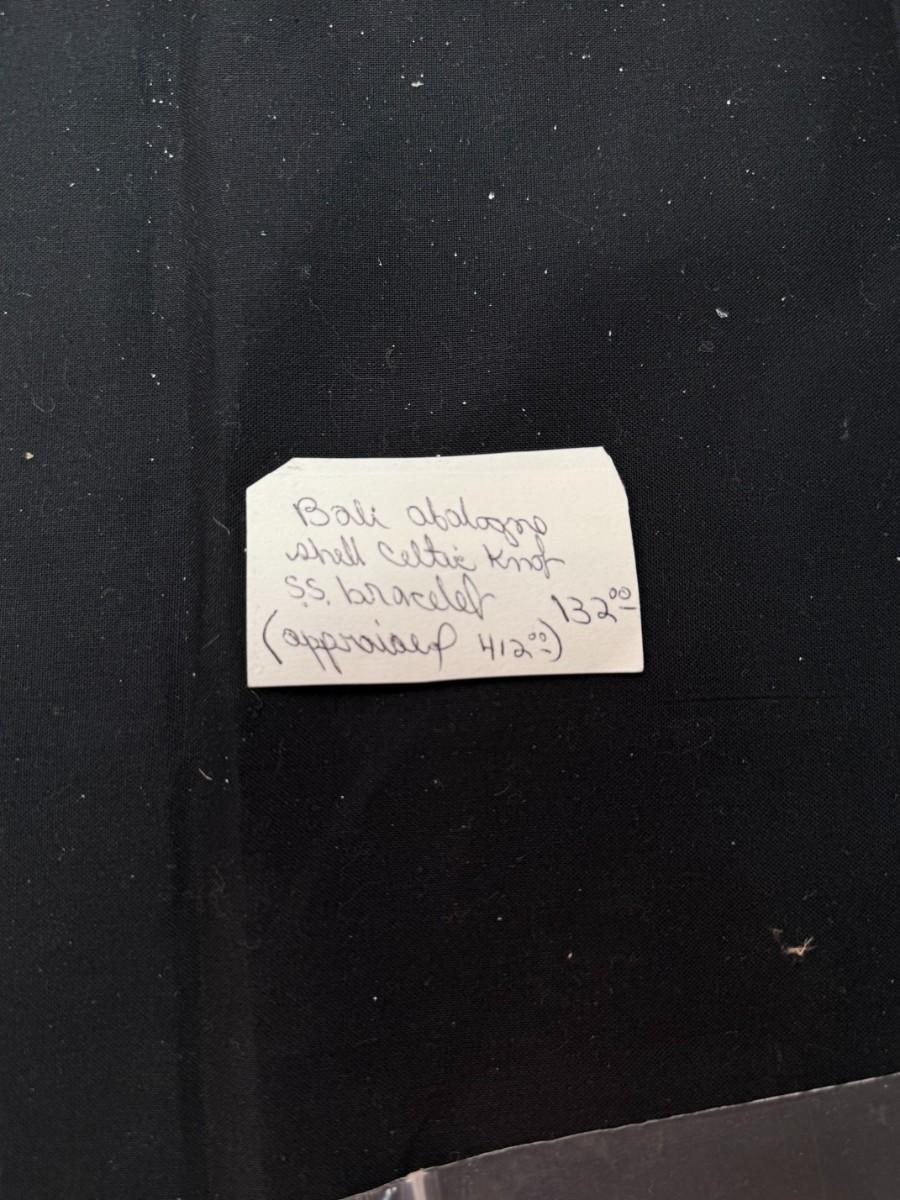 Bali abalogne
shell Celtic Knot
S.S. bracelet 132.00
(appraised 412.00)